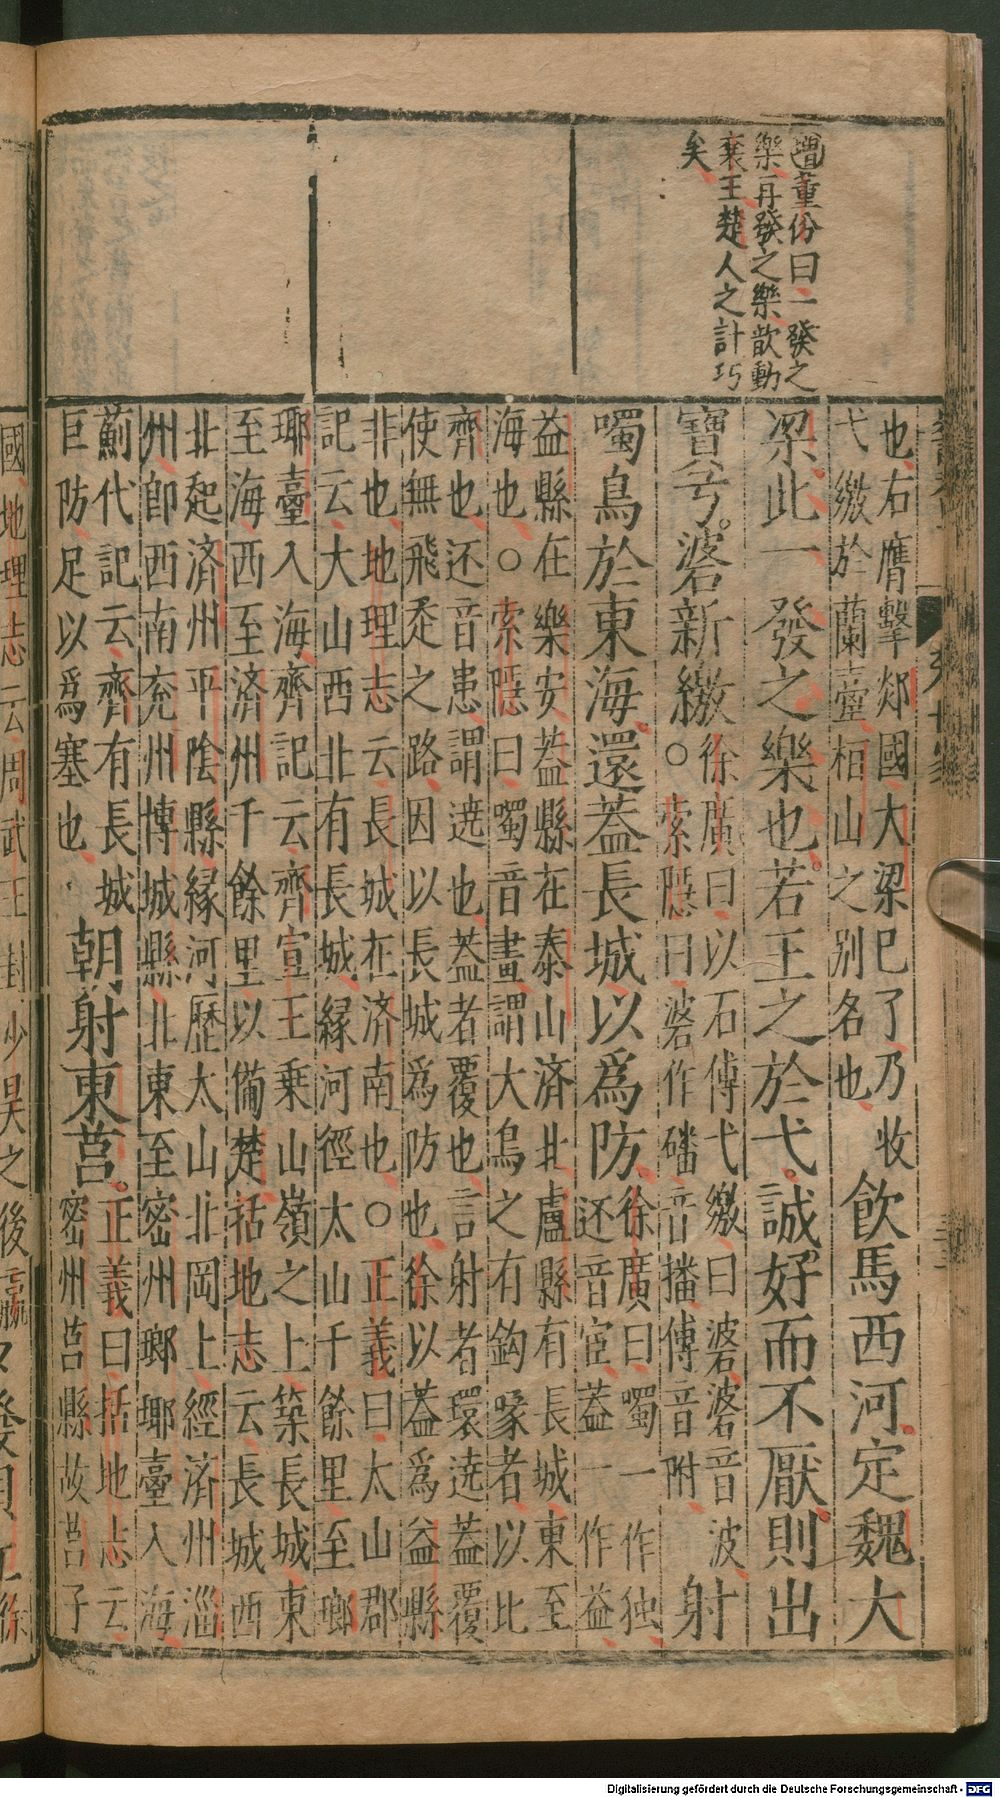 增董份曰一發之
樂再發之樂歆動
襄王楚人之計巧
矣
也右膺擊郯國大梁已了乃收
弋繳於蘭臺桓山之别名也
飲馬西河定魏大
梁此一發之樂也若王之於弋誠好而不厭則出
寶弓碆新繳
徐廣曰以石傅弋繳曰碆碆音波
○索隱曰碆作磻音播傅音附
射
噣鳥於東海還蓋長城以爲防
徐廣曰噣一作独
还音宦蓋一作益
益縣在樂安蓋縣在泰山済北盧縣有長城東至
海也○索隱曰噣音晝謂大鳥之有鈎喙者以比
齊也还音患謂遶也蓋者覆也言射者環遶蓋覆
使無飛走之路因以長城爲防也徐以蓋爲益縣
非也地理志云長城在済南也○正義曰太山郡
記云大山西北有長城縁河徑太山千餘里至瑯
瑘臺入海齊記云齊宣王乗山嶺之上築長城東
至海西至済州千餘里以備楚括地志云長城西
北起済州平陰縣縁河歷太山北岡上經済州淄
州卽西南兖州博城縣北東至密州瑯琊臺入海
薊代記云齊有長城
巨防足以爲塞也
朝射東莒
正義曰括地志云
密州莒縣故莒子
國地理志云周武王封少昊之後嬴
Digitalisierung gefördert durch die Deutsche Forschungsgemeinschaft - DFG